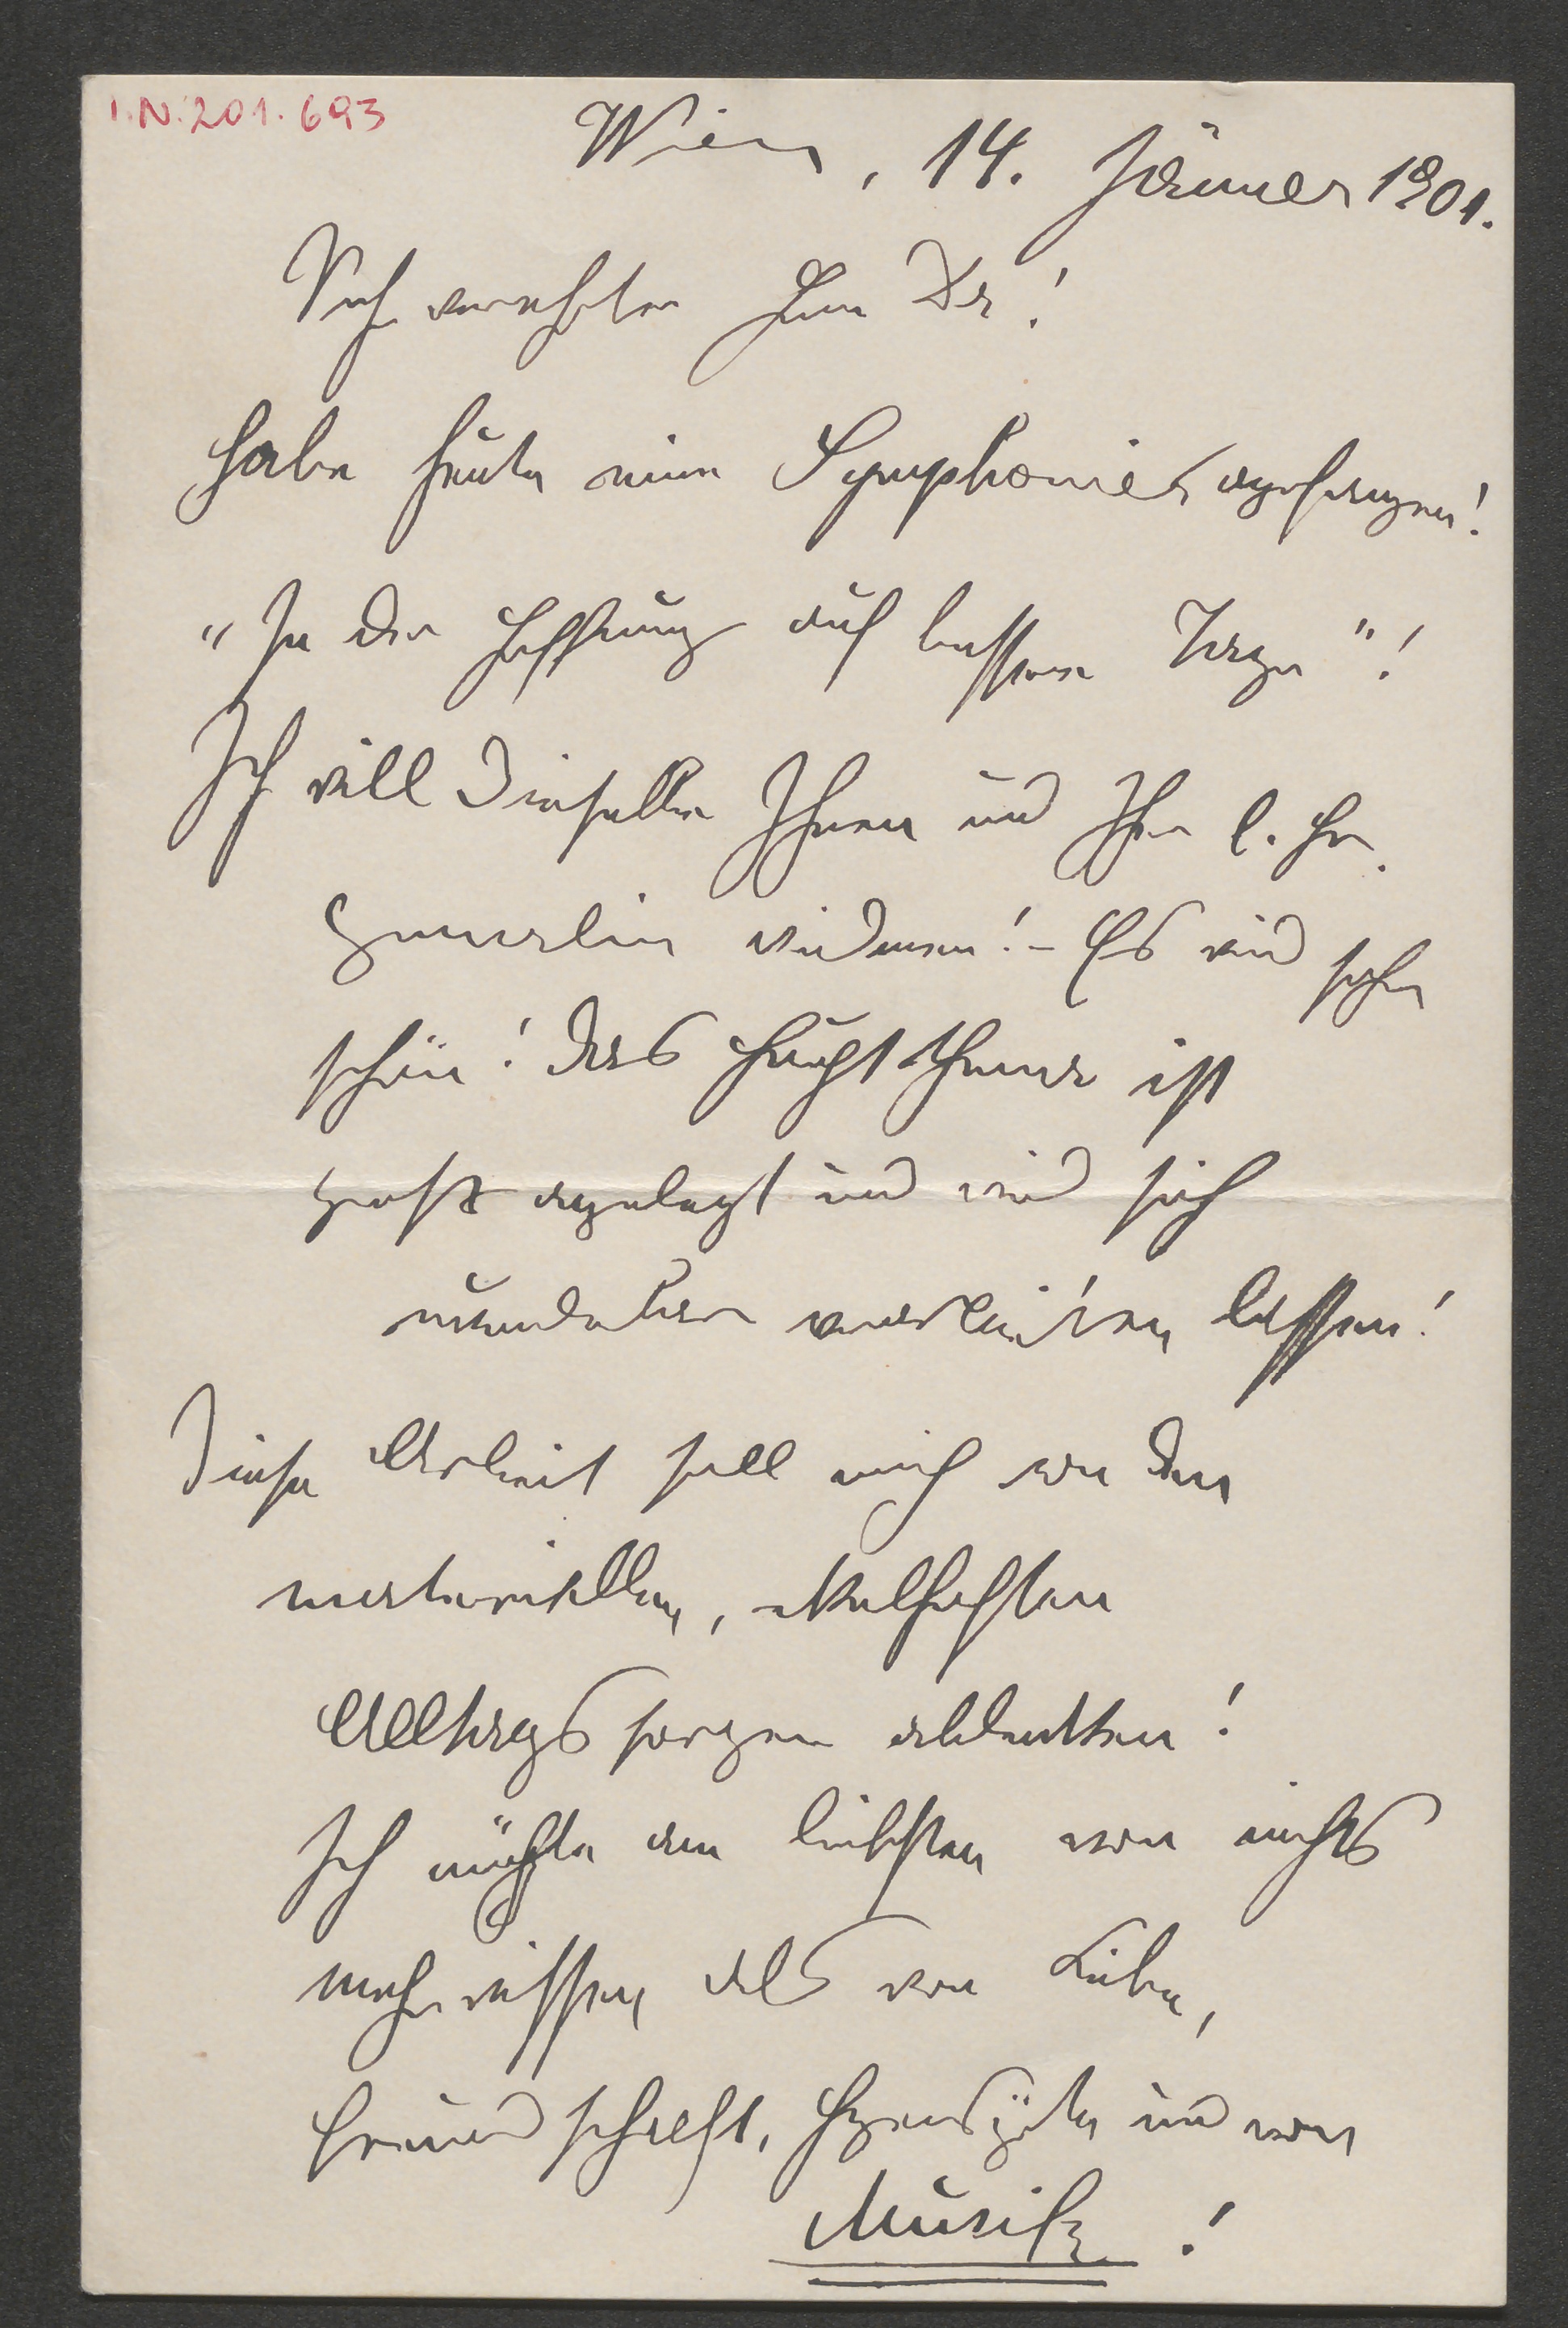 I.N. 201.693
Wien, 14. Jänner 1901.
Sehr verehrter Herr Dr!
Habe heute eine Symphonie angefangen!
"In der Hoffnung auf bessere Tage"!
Ich will dieselbe Ihnen und Ihrer l. Fr.
Gemahlin widmen! - Es wird sehr
schön! Das Hauptthema ist
groß angelegt und wird sich
wunderbar verarbeiten lassen!
Diese Arbeit soll mich von den
materiellen, ekelhaften
Alltagssorgen ablenken!
Ich möchte am liebsten von nichts
mehr wissen als von Liebe,
Freundschaft, Herzensgüte und von
Musik!